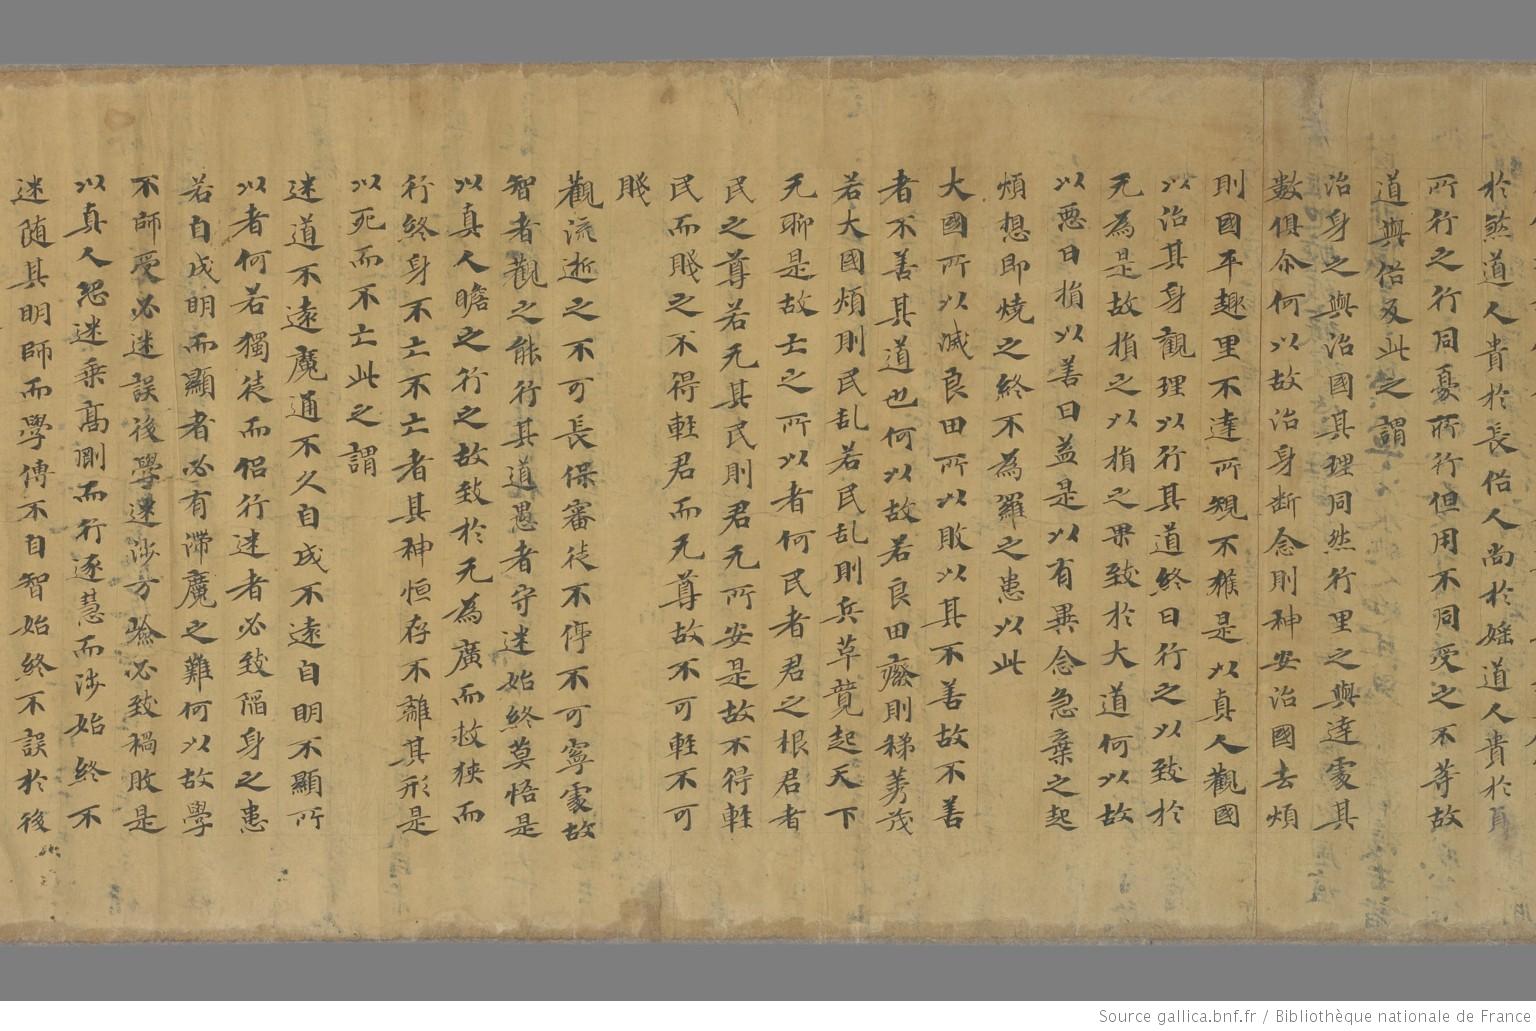 於煞道人貴於長俗人尚於婬道人貴於
所行之行同憂所行但用不同受之不等故
道與俗反此之謂
治身之與治國其理同然行里之與達處其
數俱介何以故治身断念則神安治國去煩
則國平趣里不達所規不獲是以真人觀國
以治其身觀理以行其道終日行之以致於
无為是故損之以損之果致於大道何以故
以惡日損以善日益是以有異念急棄之起
煩想即燒之終不為羅之患以此
大國所以滅良田所以敗以其不善故不善
者不善其道也何以故若良田癈則稊莠茂
若大國煩則民乱若民乱則兵草競起天下
无聊是故士之所以者何民者君之根君者
民之尊若无其民則君无所安是故不得輕
民而賤之不得輕君而无尊故不可輕不可
賤
觀流逝之不可長保審徒不停不可寧處故
智者觀之能行其道愚者守迷始終莫悟是
以真人瞻之行之故致於无為廣而救狹而
行終身不亡不亡者其神恒存不離其形是
以死而不亡此之謂
迷道不遠魔通不久自成不遠自明不顯所
以者何若獨徒而侣行迷者必致陷身之患
若自成明而顯者必有滯魔之難何以故學
不師受必迷誤後學迷涉方驗必致禍敗是
以真人恐迷乘高剛而行逐慧而涉始終不
迷随其明師而學傅不自智始終不誤於後
Source gallica.bnf.fr / Bibliothèque nationale de France